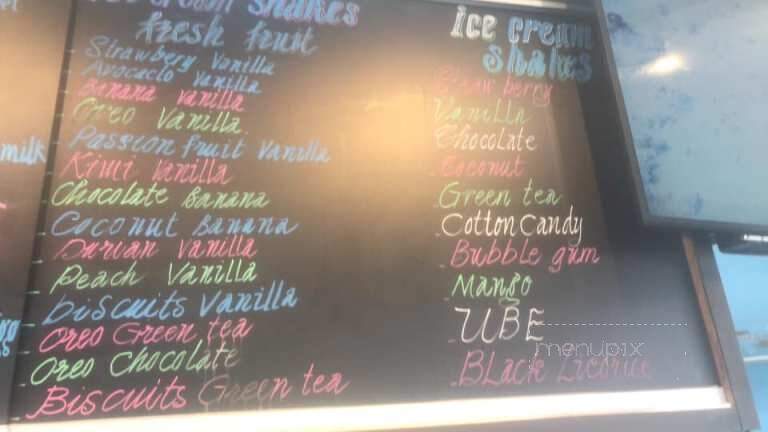 ice cream shakes
fresh fruit
Strawberry Vanilla
Avocado Vanilla
Banana Vanilla
Oreo Vanilla
Passion fruit Vanilla
Kiwi Vanilla
Chocolate Banana
Coconut Banana
Durian Vanilla
Peach Vanilla
biscuits Vanilla
Oreo Green tea
Oreo Chocolate
Biscuits Green tea
milk
ice cream
shakes
Strawberry
Vanilla
Chocolate
Coconut
Green tea
Cotton Candy
Bubble gum
Mango
UBE
Black Licorice
menupix